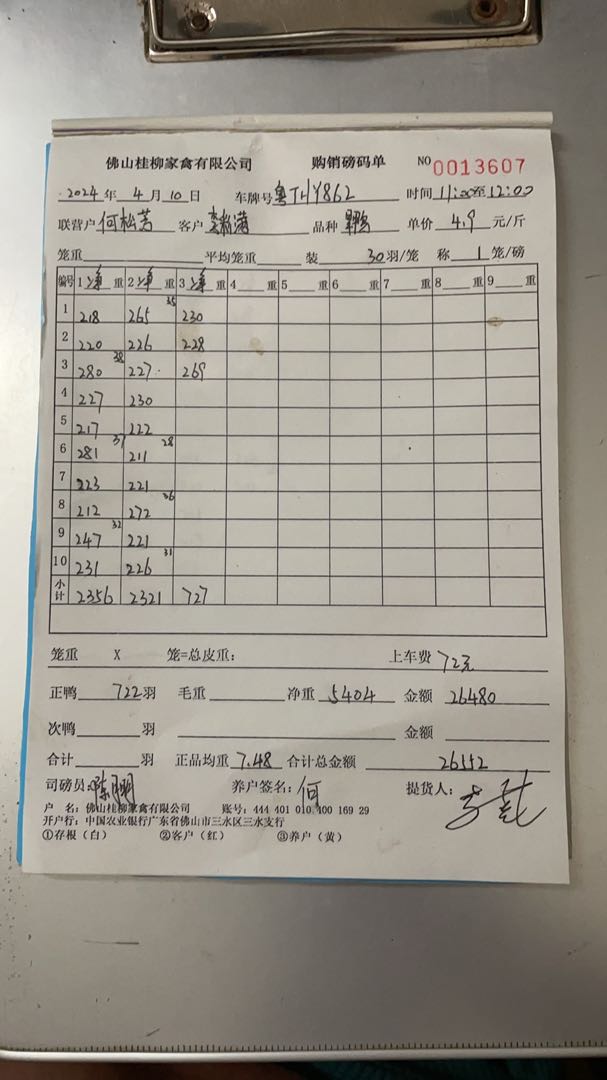 佛山桂柳家禽有限公司 购销磅码单 NO 0013607
2024年 4月 10日 车牌号 粤THY862 时间 11:00至12:00
联营户 何松芳 客户 品种 单价 4.9 元/斤
笼重 平均笼重 装 30羽/笼 称 1笼/磅
编号 1净重 2净重 3净重 4重 5重 6重 7重 8重 9重
1 218 265 35 230
2 220 226 228
3 280 38 227 269
4 227 230
5 217 222
6 281 37 211 28
7 223 221
8 212 272 36
9 247 32 221
10 231 226 31
小计 2356 2321 727
笼重 X 笼=总皮重: 上车费 72元
正鸭 722羽 毛重 净重 5404 金额 26480
次鸭 羽 金额
合计 羽 正品均重 7.48 合计总金额 26552
司磅员: 养户签名: 何 提货人:
户 名: 佛山桂柳家禽有限公司 账号: 444 401 010 400 169 29
开户行: 中国农业银行广东省佛山市三水区三水支行
①存根(白) ②客户(红) ③养户(黄)